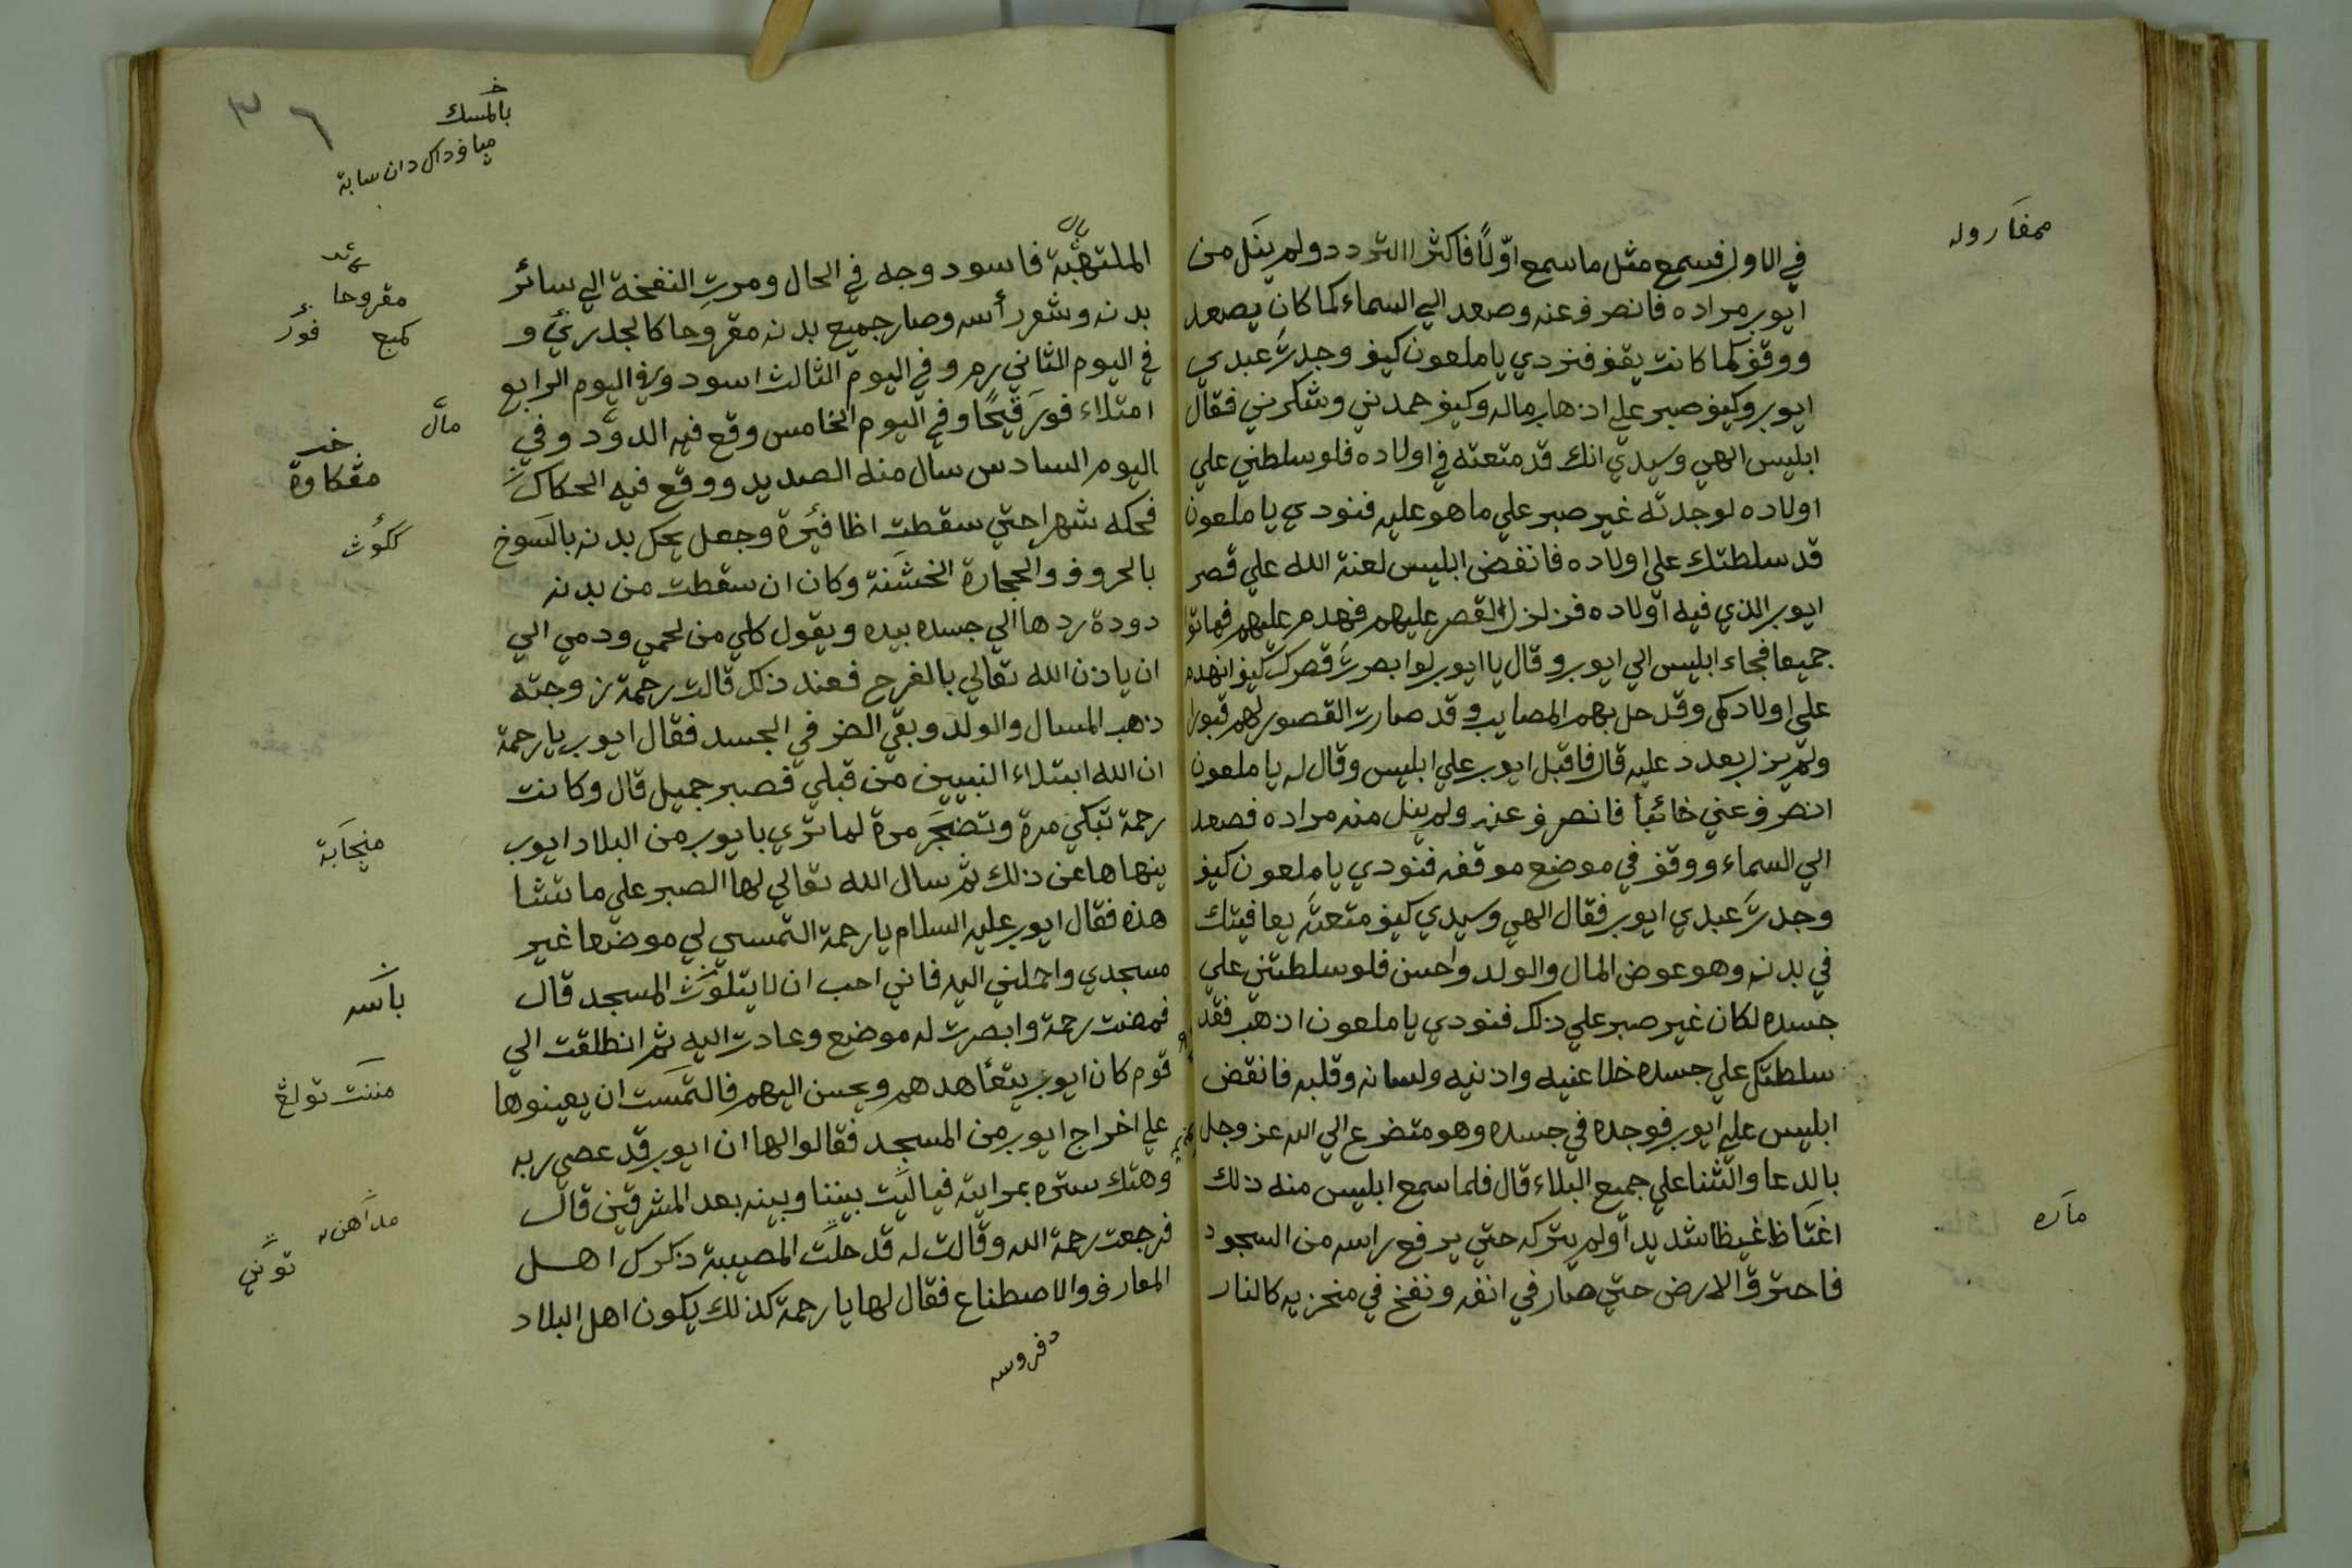 في الاول فسمع مثل ما سمع اوّلاً فاكثر التردد ولم ينل من
ايوب مراده فانصرف عنه وصعد الي السماء كما كان يصعد
ووقف كما كانت يقف فنودي يا ملعون كيف وجدت عبدي
ايوب وكيف صبر علي اذهاب ماله وكيف حمدني وشكرني فقال
ابليس الهي وسيدي انك قد متعته في اولاده فلو سلطني علي
اولاده لوجدته غير صبر علي ما هو عليه فنودي يا ملعون
قد سلطتك علي اولاده فانقض ابليس لعنة الله علي قصر
ايوب الذي فيه اولاده فزلزل القصر عليهم فهدم عليهم فماتوا
جميعا فجاء ابليس الي ايوب وقال يا ايوب لو ابصرت قصرك كيف انهدم
علي اولادك وقد حل بهم المصايب وقد صارت القصور لهم قبورا
ولم يزل يعدد عليه قال فاقبل ايوب علي ابليس وقال له يا ملعون
انصرف عني خائبا فانصرف عنه ولم ينل منه مراده فصعد
الي السماء ووقف في موضع موقفه فنودي يا ملعون كيف
وجدت عبدي ايوب فقال الهي وسيدي كيف متعته بعافيتك
في بدنه وهو عوض المال والولد واحسن فلو سلطتني علي
جسده لكان غير صبر علي ذلك فنودي يا ملعون اذهب فقد
سلطتك علي جسده خلا عنيه واذنيه ولسانه وقلبه فانقض
ابليس علي ايوب فوجده في جسده وهو متضرع الي الله عز وجل
بالدعا والثنا علي جميع البلاء قال فلما سمع ابليس منه ذلك
اغتاظ غيظا شديدا ولم يتركه حتي يرفع راسه من السجود
فاحترق الارض حتي صار في انفه ونفخ في منخريه كالنار
مماره
٣٦
بالمسك
الملتهبة فاسود وجه في الحال ومرت النفخة الي سائر
بدنه وشعر رأسه وصار جميع بدنه مقروحا كالجدري و
في اليوم الثاني رم وفي اليوم الثالث اسود وفي اليوم الرابع
امتلاء فور قيحا وفي اليوم الخامس وقع فيه الدود وفي
اليوم السادس سال منه الصديد ووقع فيه الحكاك
فحكه شهرا حتي سقطت اظافيره وجعل يحك بدنه بالسوخ
بالحروف والحجارة الخشنة وكان ان سقطت من بدنه
دودة ردها الي جسده بيده ويقول كلي من لحمي ودمي الي
ان ياذن الله تعالي بالفرج فعند ذلك قالت رحمة زوجته
ذهب المال والولد وبقي الضر في الجسد فقال ايوب يا رحمة
ان الله ابتلاء النبيين من قبلي فصبر جميل قال وكانت
رحمة تبكي مرة وتضجر مرة لما تري بايوب من البلاد ايوب
ينهاها عن ذلك ثم سال الله تعالي لها الصبر علي ما تشا
هذه فقال ايوب عليه السلام يا رحمة التمسي لي موضعا غير
مسجدي واحملني اليه فاني احب ان لا يتلوث المسجد قال
فمضت رحمة وابصرت له موضع وعادت اليه ثم انطلقت الي
قوم كان ايوب يتعاهدهم ويحسن اليهم فالتمست ان يعينوها
علي اخراج ايوب من المسجد فقالوا لها ان ايوب قد عصي ربه
وهتك ستره بمرايته فيا ليت بيننا وبينه بعد المشرقين قال
فرجعت رحمة الله وقالت له قد حلت المصيبة ذكرك اهل
المعارف والاصطناع فقال لها يا رحمة كذلك يكون اهل البلاد
مقروحا
فور
مقكاوة
باسه